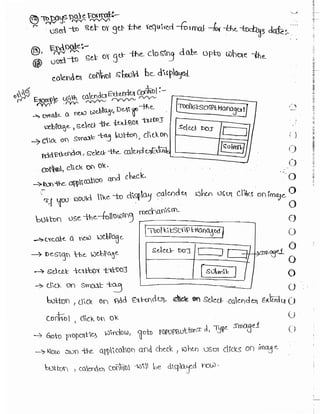 TodaysDateFormat:-
used to set or get the required format for the todays date.
EndDate:-
used to set or get the closing date upto where the
calender control should be displayed
Example with calenderExtender Control:-
→ create a new webPage, Design the
webpage, select the textBox txtDOJ
→ click on smart tag button, click on
Add Extender, select the calenderExtender
control, click on ok.
→ Run the application and check.
ToolkitScriptManager1
Select DOJ
Submit
If you would like to display calender when user clicks on image
button use the following mechanism.
→ create a new webPage
→ Design the webPage
→ select textbox txtDOJ
→ click on smart tag
button, click on Add Extender, select calender Extender
control, click on ok
ToolkitScriptManager1
Select DOJ
Image1
Submit
→ Goto properties window, goto PopupButton Id, Type Image1
→ Now run the application and check, when user clicks on image
button, calender control will be displayed now.